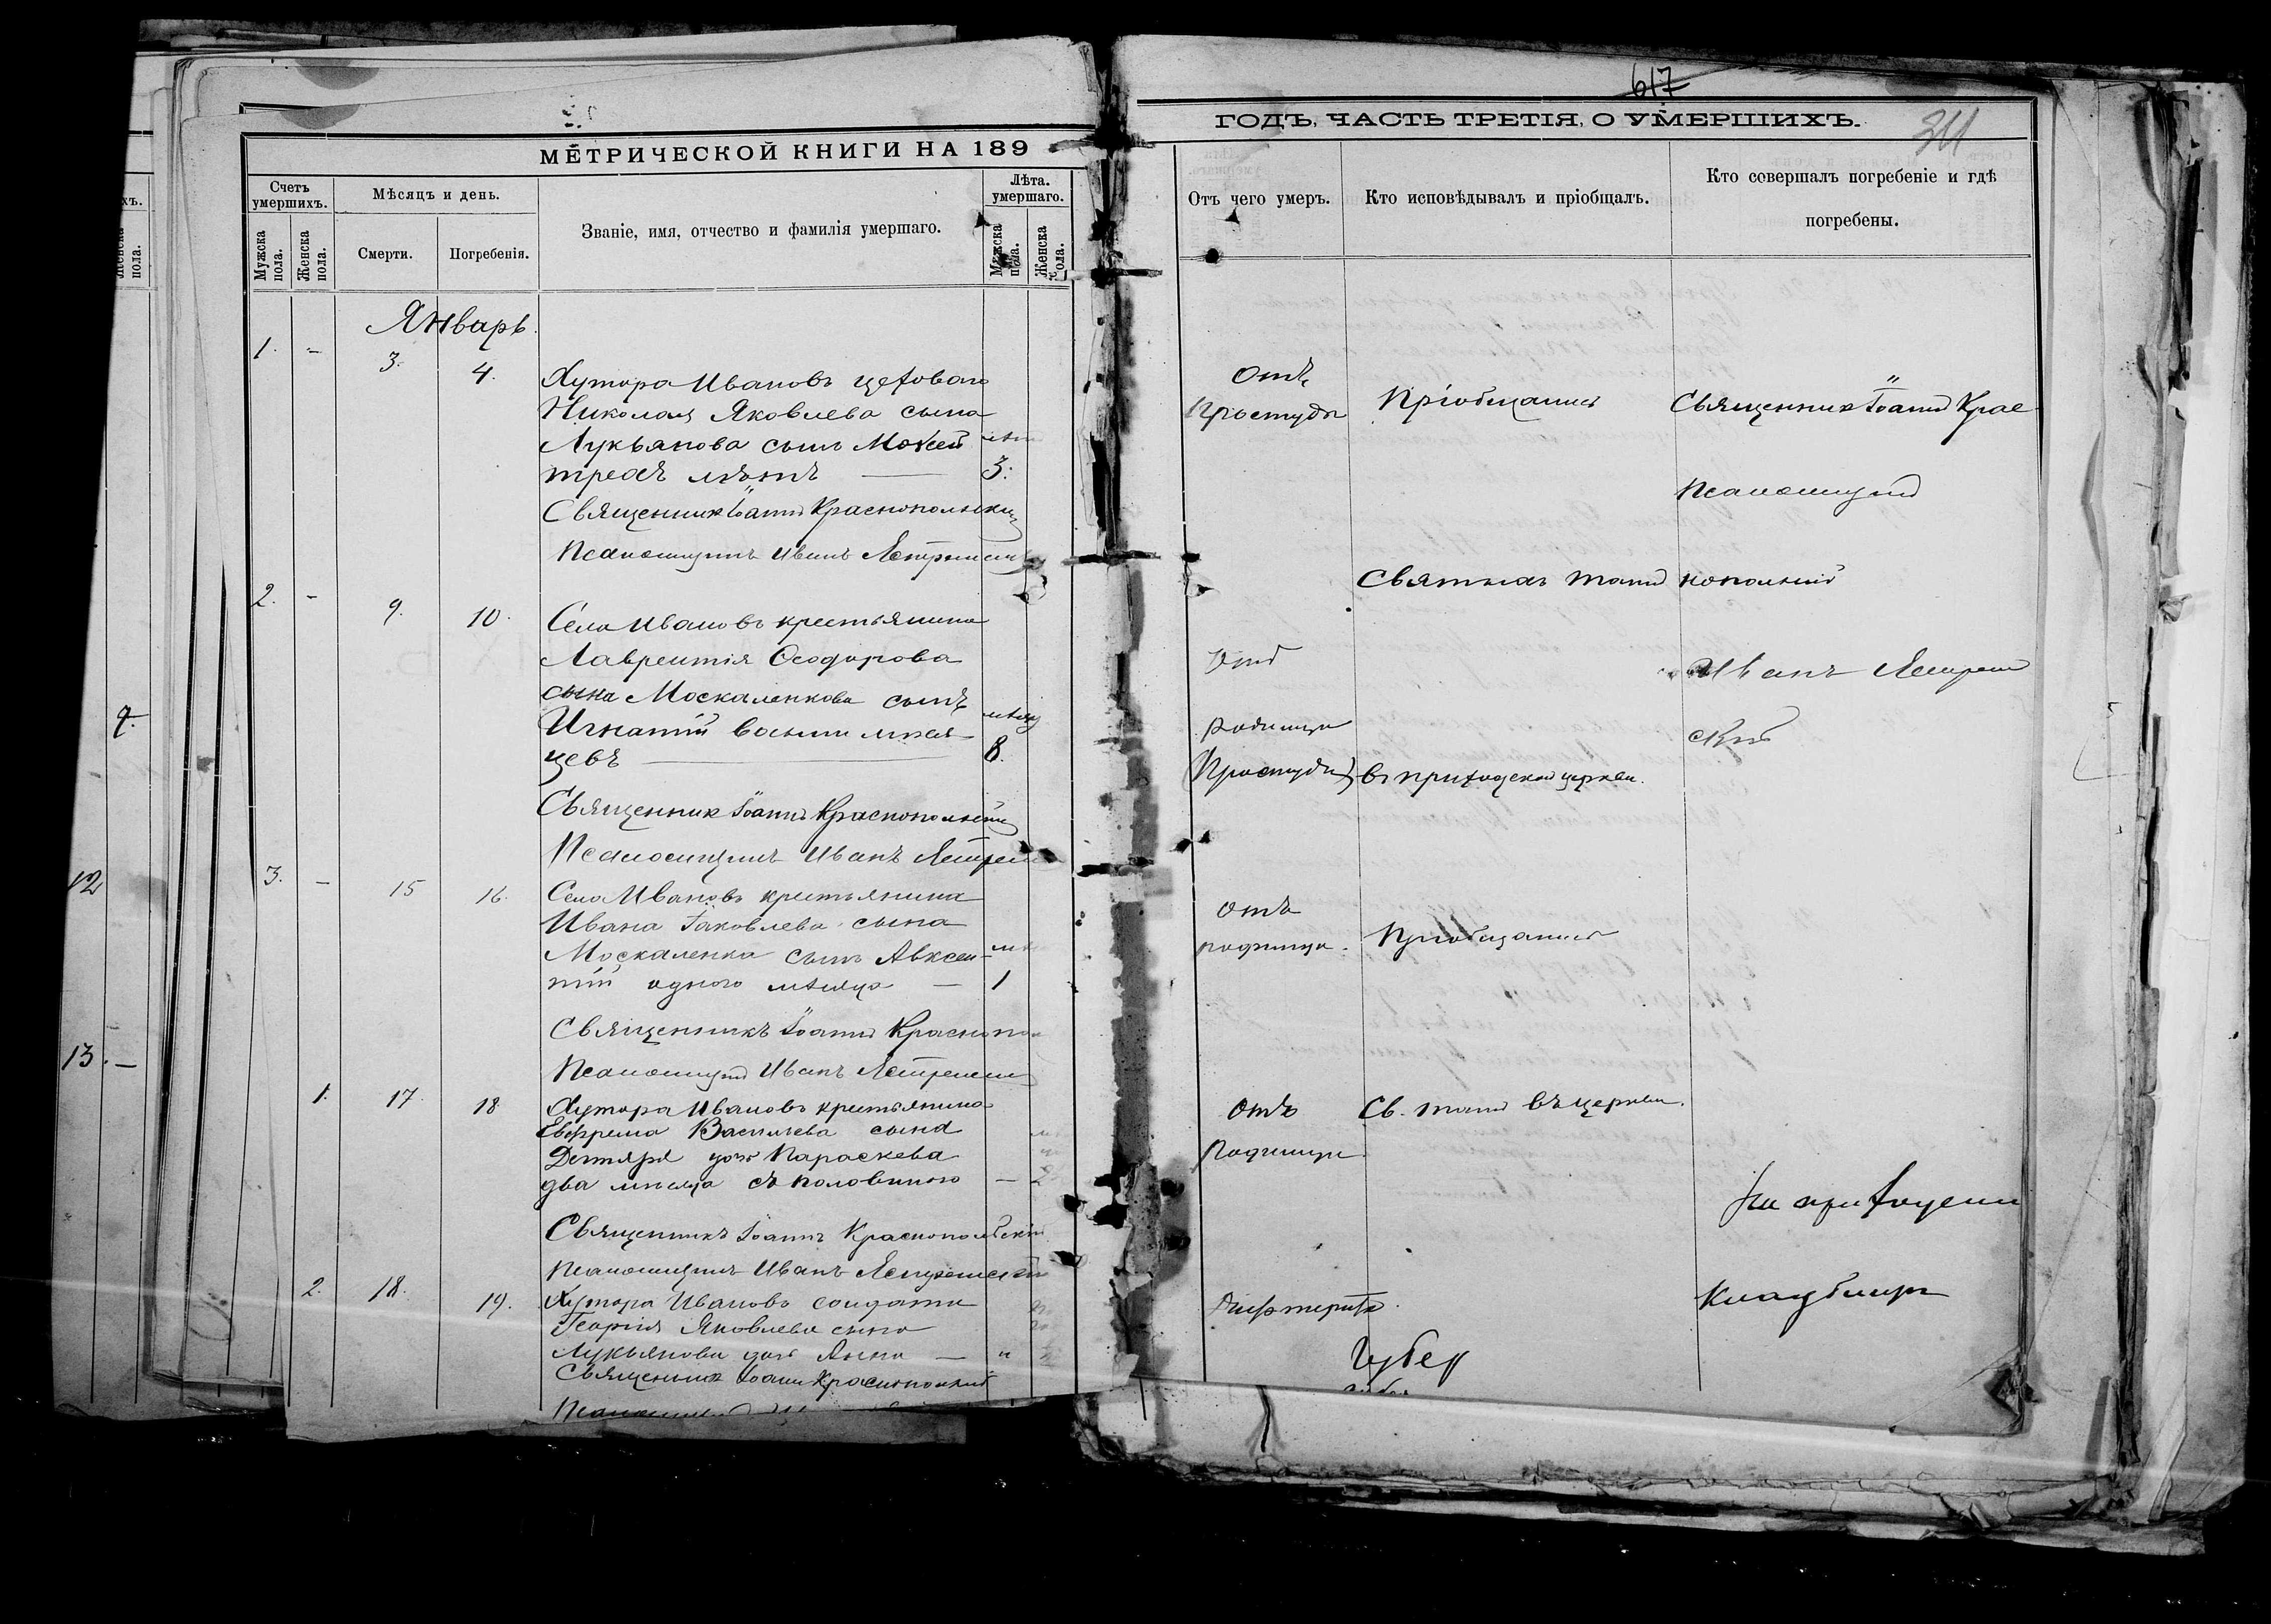 МЕТРИЧЕСКОЙ КНИГИ НА 189
Счетъ умершихъ.
Мѣсяцъ и день.
Званіе, имя, отчество и фамилія умершаго.
Лѣта. умершаго.
Мужска пола.
Женска пола.
Смерти.
Погребенія.
Мужска пола.
Женска пола.
Январь.
1. - 3. 4.
Хутора Ивановъ цехового
Николая Яковлева сына
Лукьянова сынъ Мокей
трехъ лѣтъ — 3.
Священникъ Іоаннъ Краснопольскій
Псаломщикъ Иванъ
2. - 9. 10.
Села Ивановъ крестьянина
Лаврентія Ѳеодорова
сына Москаленкова сынъ
Игнатій восьми мѣся-
цевъ — 8.
Священникъ Іоаннъ Краснопольскій
Псаломщикъ Иванъ
3. - 15 16.
Села Ивановъ крестьянина
Ивана Іаковлева сына
Москаленка сынъ Авксен-
тій одного мѣсяца — 1
Священникъ Іоаннъ Краснопол
Псаломщикъ Иванъ
1. 17. 18
Хутора Ивановъ крестьянина
Евфрема Васильева сына
Дегтяря дочь Параскева
два мѣсяца съ половиною — 2
Священникъ Іоаннъ Краснопольскій
Псаломщикъ Иванъ
2. 18. 19.
Хутора Ивановъ солдата
Георгія Яковлева сына
Лукьянова дочь Анна — "
Священникъ Іоаннъ Краснопольскій
Псаломщикъ
12
13. —
617
ГОДЪ, ЧАСТЬ ТРЕТІЯ, О УМЕРШИХЪ.
311
Отъ чего умеръ.
Кто исповѣдывалъ и пріобщалъ.
Кто совершалъ погребеніе и гдѣ погребены.
Отъ
простуды
Пріобщались
Священникъ Іоаннъ Крас
Псаломщикъ
Святыхъ таинъ
нопольскій
Отъ
Иванъ
родимца
скій
Простуды
въ приходской церкви.
Отъ
родимца.
Пріобщались
Отъ
Св. таинъ въ церкви.
Родимца
На приходскомъ
Дифтерита.
кладбищѣ